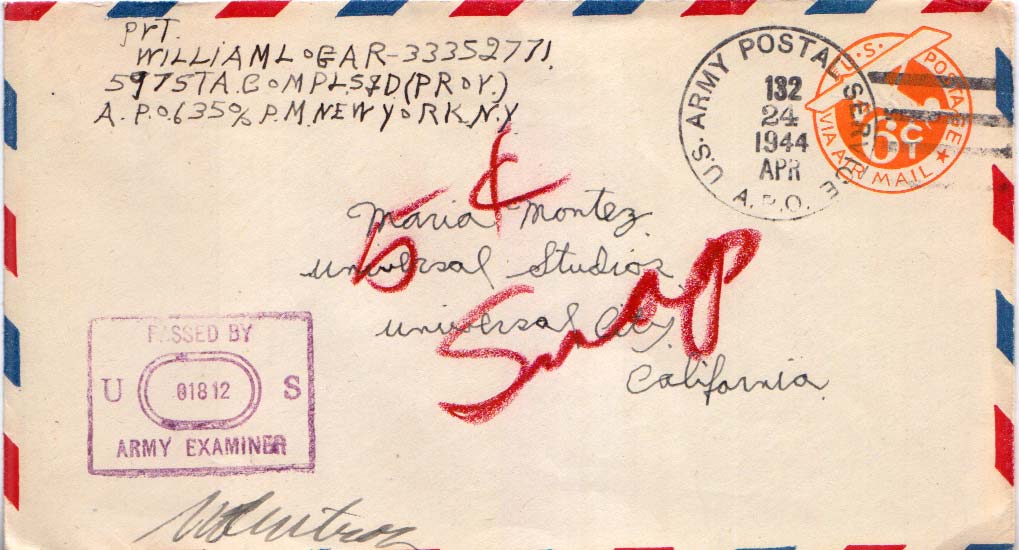 Pvt.
WILLIAM LOGAR-33352771.
597 STA. COMPL SqD (PROV.)
A.P.O. 635 % P.M. NEW YORK, N.Y.
U.S. ARMY POSTAL SERVICE
132
24
1944
APR
A.P.O.
U.S. POSTAGE
6C
VIA AIR MAIL
5 ¢
Maria Montez
Universal Studios
Universal City,
California.
Snap
PASSED BY
U 01812 S
ARMY EXAMINER